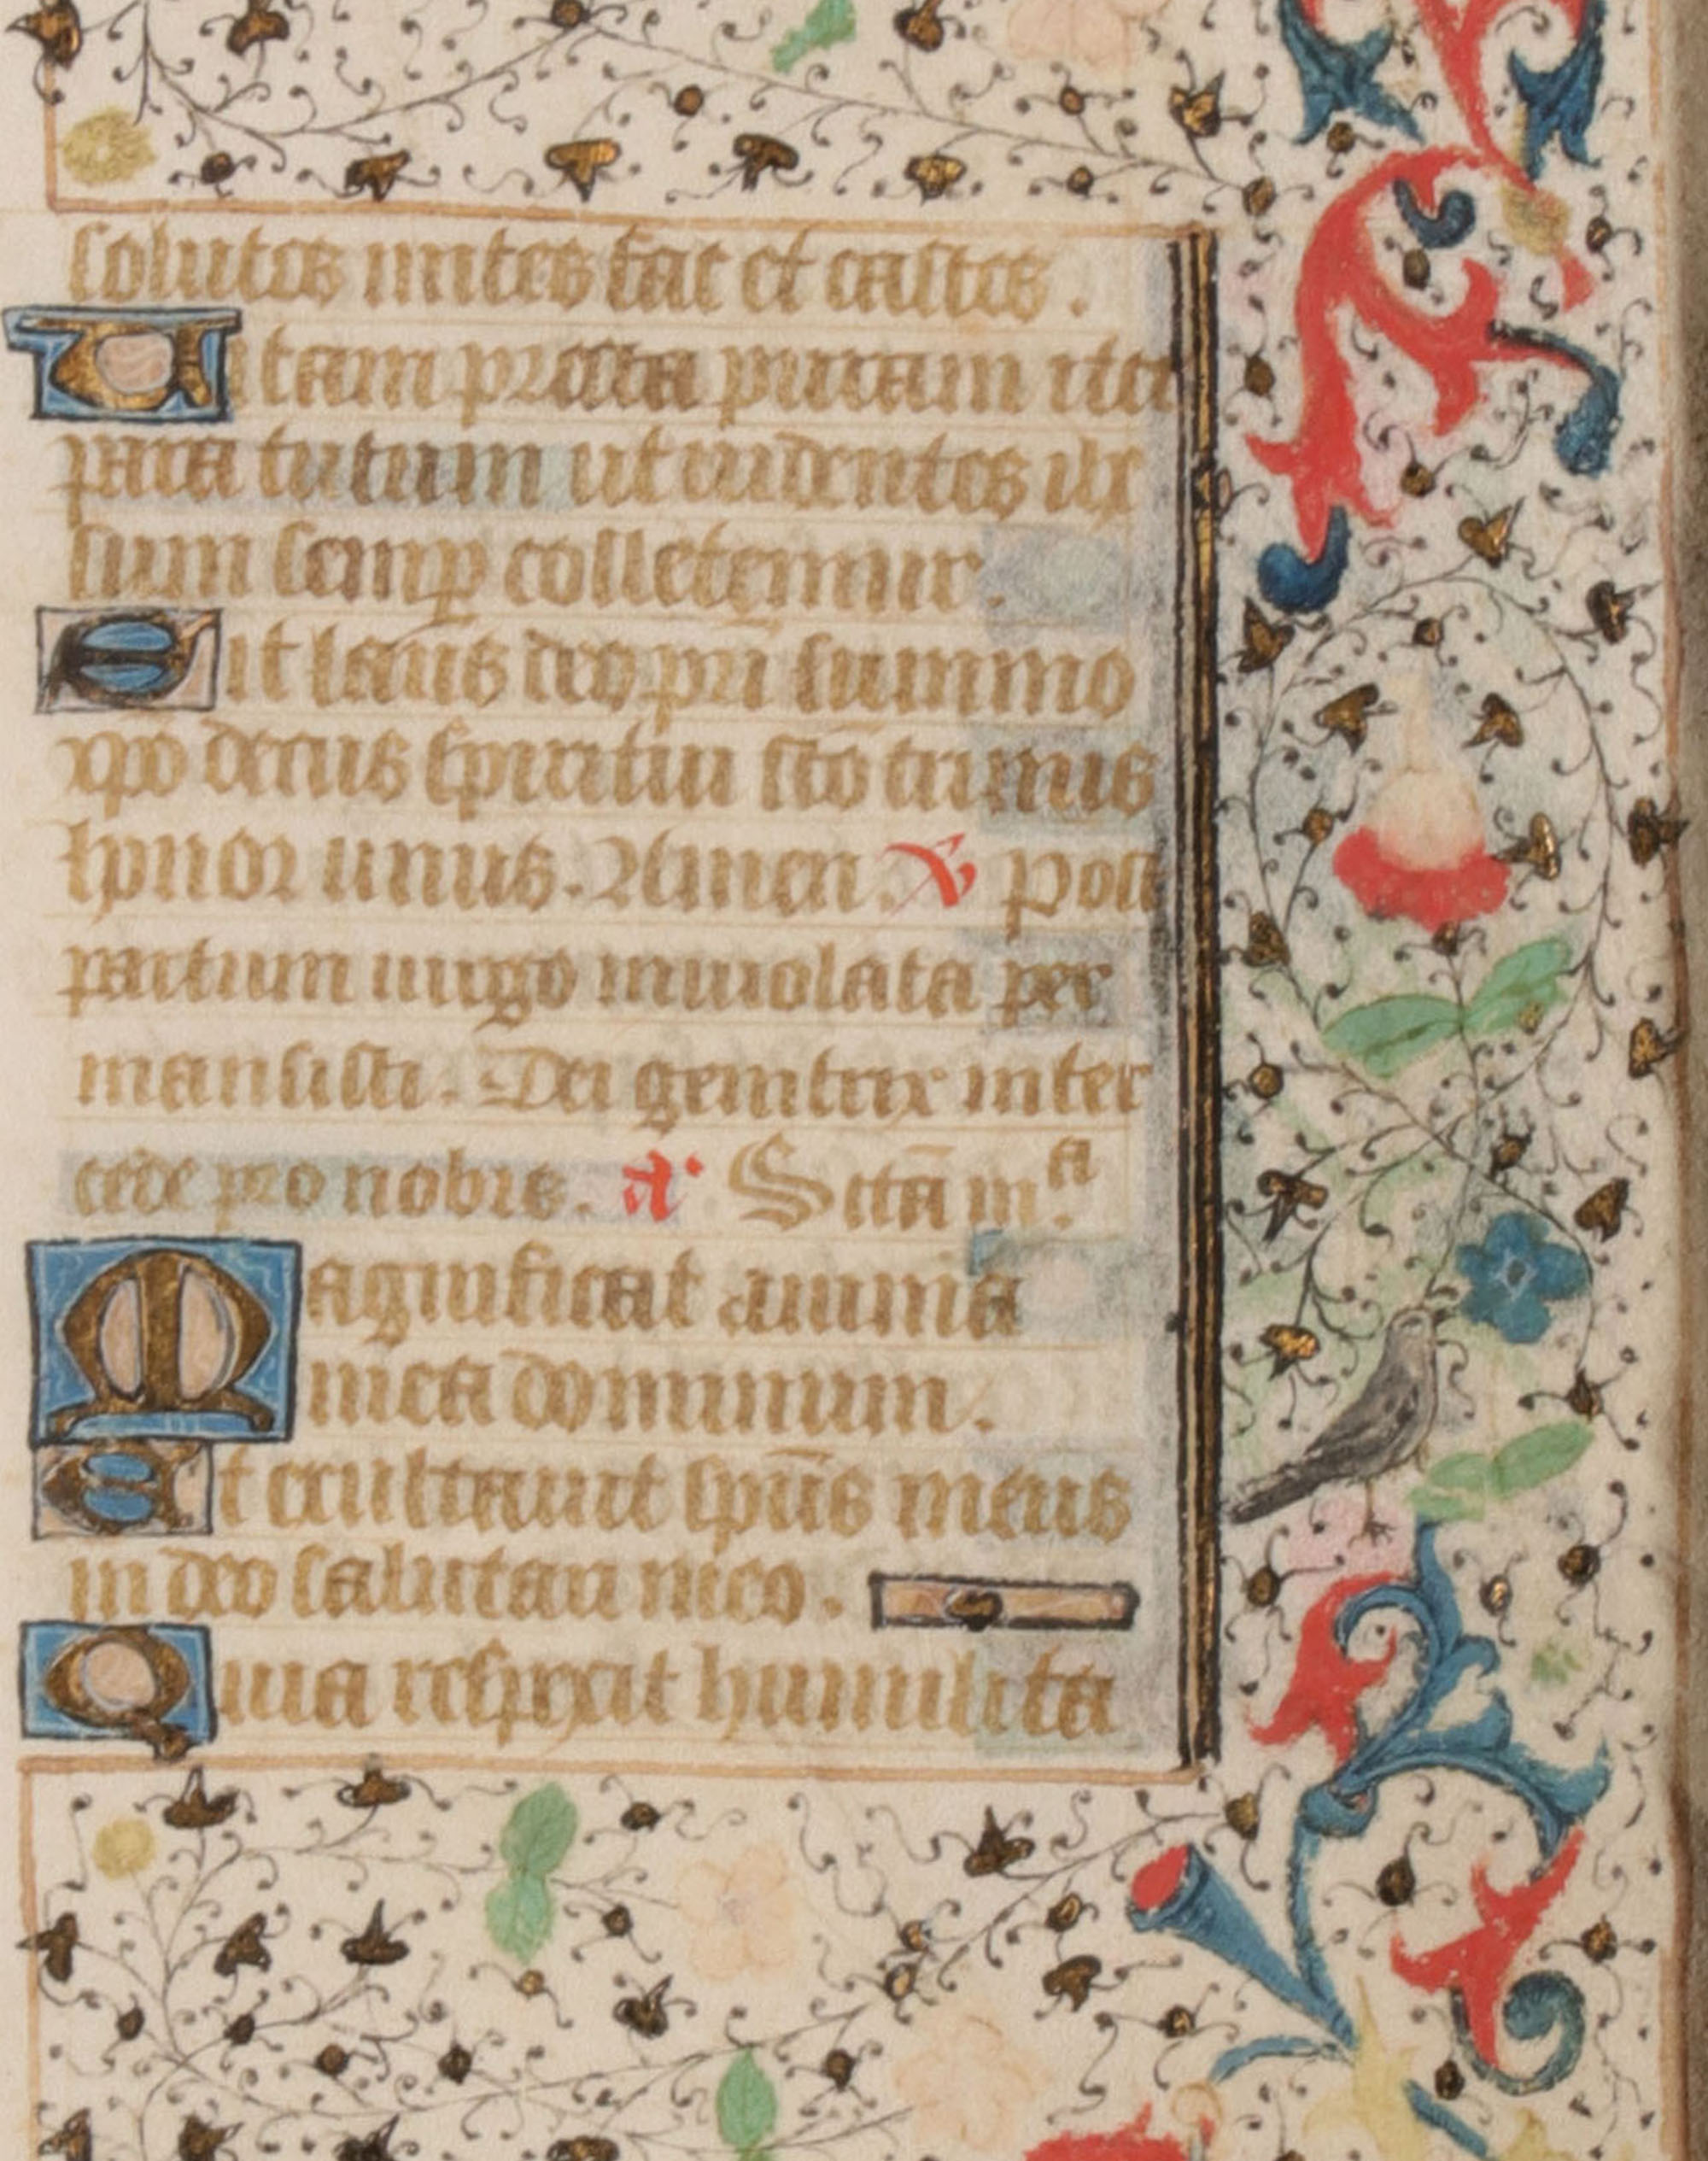 solutos mites fac et castos.
Vitam presta puram iter
para tutum ut videntes ihe
sum semp colletemur.
Sit laus deo pri summo
xpo decus spiritui sco trinus
honor unus. Amen. V Post
partum virgo inviolata per
mansisti. Dei genitrix inter
cede pro nobis. a. Sctā mᵃ.
Magnificat anima
mea dominum.
Et exultavit spūs meus
in deo salutari meo.
Quia respexit humilita